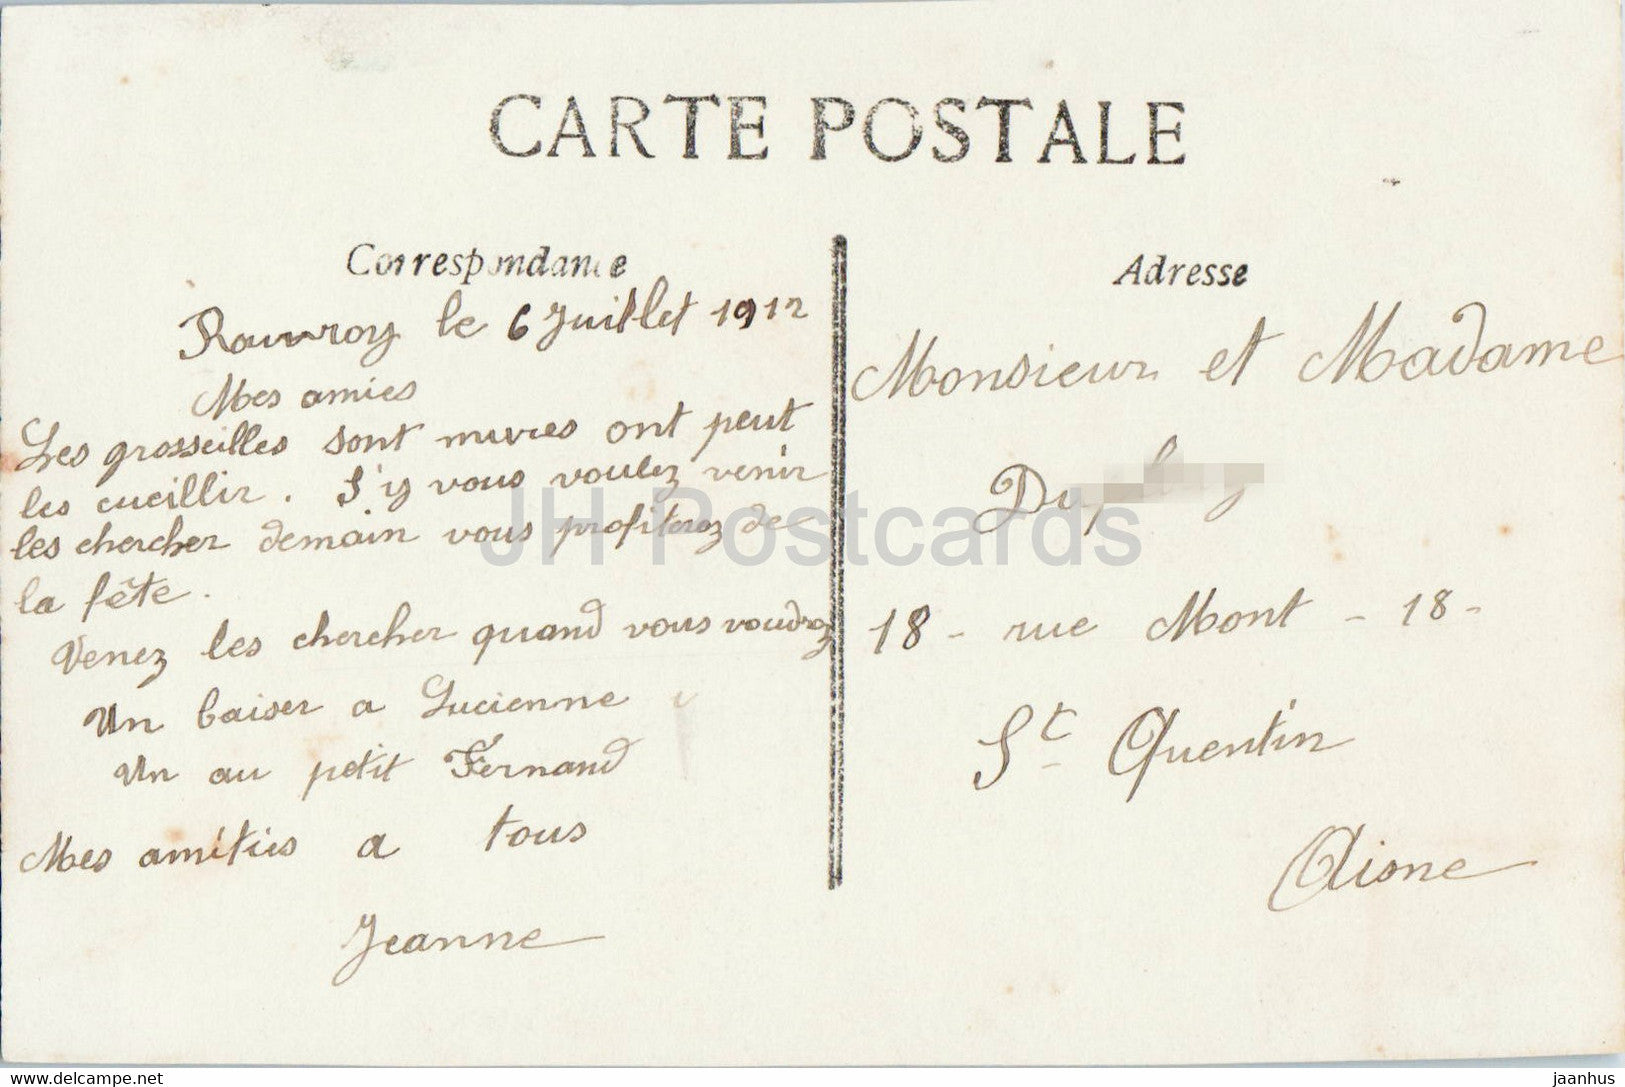 CARTE POSTALE
Correspondance
Rouvroy le 6 Juillet 1912
Mes amies
Les grosseilles sont mures ont peut
les cueillir. S'iy vous voulez venir
les chercher demain vous profiterez de
la fête.
Venez les chercher quand vous voudrez
Un baiser a Lucienne
Un au petit Fernand
Mes amitiés a tous
Jeanne
Adresse
Monsieur et Madame
18 - rue Mont - 18 -
St Quentin
Aisne
JH Postcards
www.delcampe.net
jaanhus